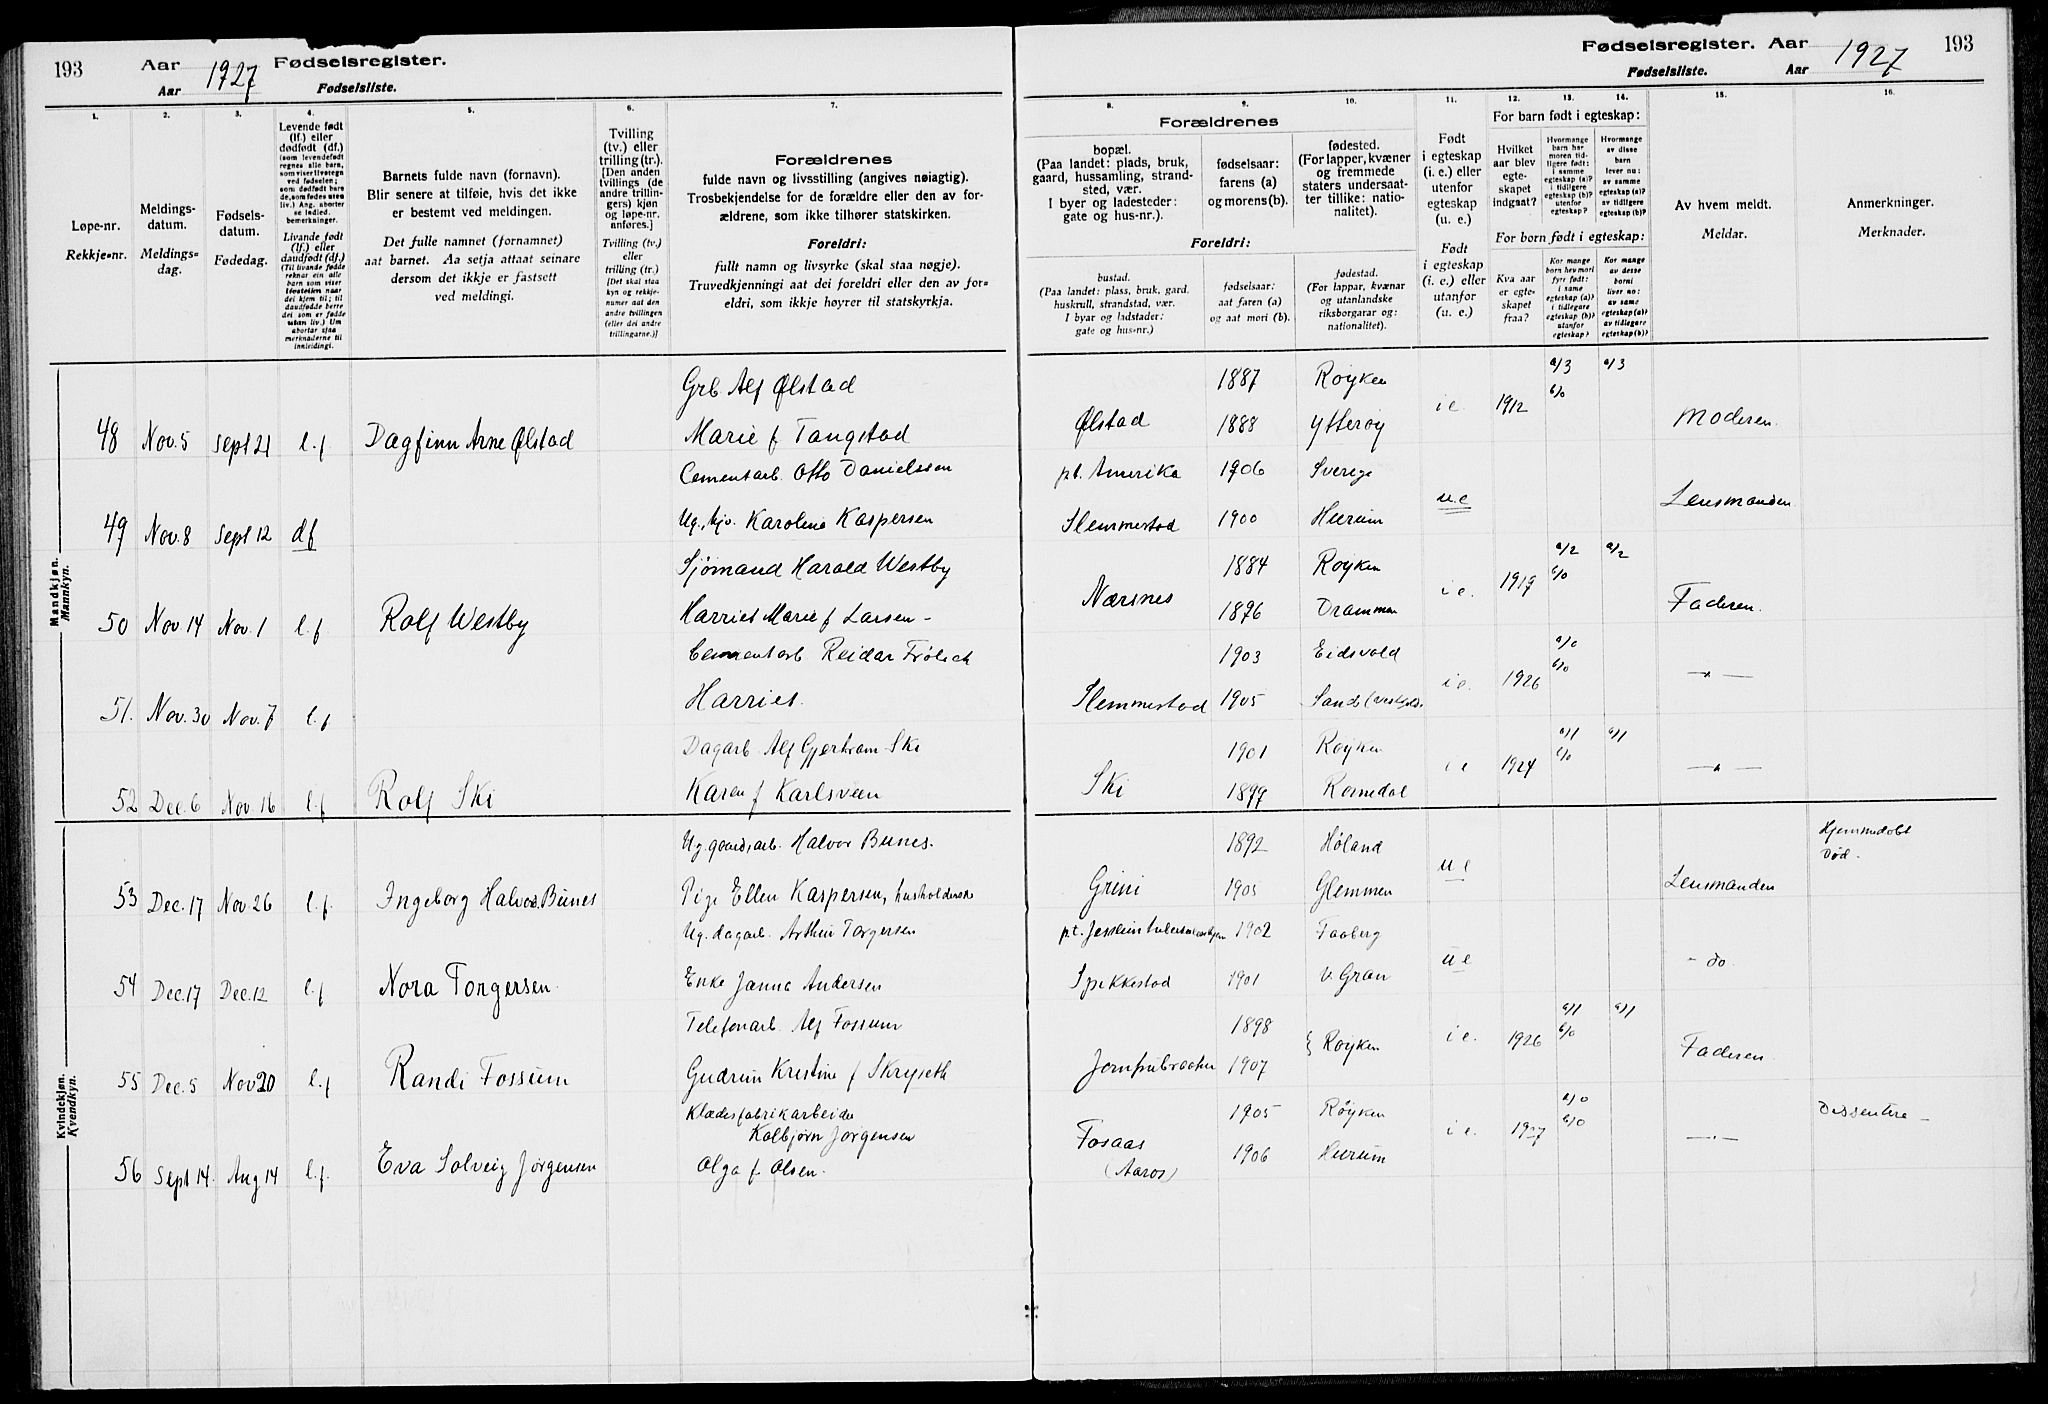 193 Aar 1927 Fødselsregister.
Aar Fødselsliste.
Fødselsregister. Aar 1927 193
Fødselsliste. Aar
1. 2. 3. 4. 5. 6. 7.
Løpe-nr.
Rekkje-nr.
Meldings-
datum.
Meldings-
dag.
Fødsels-
datum.
Fødedag.
Levende født
(lf.) eller
dødfødt (df.)
(som levendefødt
regnes alle barn,
som viser livstegn
ved fødselen;
som dødfødt bare
de, som fødes uten
liv.) Ang. aborter
se indled.
bemerkninger.
Livande født
(lf.) eller
daudfødt (df.)
(Til livande fødde
reknar ein alle
barn som viser
livsteikn naar
dei kjem til; til
daudfødde berre
dei som er fødde
utan liv.) Um
abortar sjaa
merknaderne til
innleidingi.
Barnets fulde navn (fornavn).
Blir senere at tilføie, hvis det ikke
er bestemt ved meldingen.
Det fulle namnet (fornamnet)
aat barnet. Aa setja attaat seinare
dersom det ikkje er fastsett
ved meldingi.
Tvilling
(tv.) eller
trilling (tr.).
[Den anden
tvillings (de
andre trillin-
gers) kjøn
og løpe-nr.
anføres.]
Tvilling (tv.)
eller
trilling (tr.)
[Det skal staa
kyn og rekkje-
numer aat den
andre tvillingen
(eller dei andre
trillingarne.)]
Forældrenes
fulde navn og livsstilling (angives nøiagtig).
Trosbekjendelse for de forældre eller den av for-
ældrene, som ikke tilhører statskirken.
Foreldri:
fullt namn og livsyrke (skal staa nøgje).
Truvedkjenningi aat dei foreldri eller den av for-
eldri, som ikkje høyrer til statskyrkja.
8. 9. 10. 11. 12. 13. 14. 15. 16.
Forældrenes
bopæl.
(Paa landet: plads, bruk,
gaard, hussamling, strand-
sted, vær.
I byer og ladesteder:
gate og hus-nr.).
fødselsaar:
farens (a)
og morens (b).
fødested.
(For lapper, kvæner
og fremmede
staters undersaat-
ter tillike: natio-
nalitet).
Foreldri:
bustad.
(Paa landet: plass, bruk, gard,
huskrull, strandstad, vær.
I byar og ladstader:
gate og hus-nr.)
fødselsaar:
aat faren (a)
og aat mori (b).
fødestad.
(For lappar, kvænar
og utanlandske
riksborgarar og:
nationalitet).
Født
i egteskap
(i. e.) eller
utenfor
egteskap
(u. e.)
Født
i egteskap
(i. e.) eller
utanfor
(u. e.)
For barn født i egteskap:
Hvilket
aar blev
egte-
skapet
indgaat?
Hvormange
barn har
moren tid-
ligere født:
i samme
egteskap (a)?
i tidligere
egteskap (b)?
utenfor
egteskap?
Hvormange
av disse
barn
lever nu:
av samme
egteskap (a)?
av tidligere
egteskap (b)?
For born født i egteskap:
Kva aar
er egte-
skapet
fraa?
Kor mange
born hev mori
fyrr født:
i same
egteskap (a)?
i tidlegare
egteskap (b)?
utanfor
egteskap?
Kor mange
av desse
borni
liver no:
av same
egteskap (a)?
av tidlegare
egteskap (b)?
Av hvem meldt.
Meldar.
Anmerkninger.
Merknader.
Mandkjøn.
Mannkyn.
Grb. Alf Ølstad 1887 Røyken a/3 a/3
b/o
48 Nov. 5 Sept 21 l.f Dagfinn Arne Ølstad Marie f Tangstad Ølstad 1888 Ytterøy i e. 1912 Moderen.
Cementarb. Otto Danielssen pt. Amerika 1906 Sverige
49 Nov. 8 Sept 12 df Ug. tjv. Karoline Kaspersen Slemmestad 1900 Hurum u.e Lensmanden
Sjømand Harald Westby 1884 Røyken a/2 a/2
b/o
50 Nov 14 Nov. 1 l.f Rolf Westby Harriet Marie f Larsen - Nærsnes 1896 Drammen i e. 1919 Faderen.
Cementarb Reidar Frölich 1903 Eidsvold a/o
b/o
51. Nov. 30 Nov. 7 l.f Harriet. Slemmestad 1905 Sand (Vestfold. i e. 1926 — " —
Dagarb Alf Gjertram Ski 1901 Røyken a/1 a/1
b/o
52 Dec. 6 Nov. 16 l.f Rolf Ski Karen f Karlsveen Ski 1899 Romedal i e 1924 — " —
Kvindekjøn.
Kvendkyn.
Ug. gaardsarb. Halvor Bunes. 1892 Høland Hjemmedøbt
Død.
53 Dec. 17 Nov. 26 l.f. Ingeborg Halvor Bunes Pige Ellen Kaspersen, husholderske Grini 1905 Glemmen u e Lensmanden
Ug. dagarb. Arthur Torgersen pt. 1902 Faaberg
54 Dec. 17 Dec. 12 l.f Nora Torgersen. Enke Janna Andersen Spikkestad 1901 V. Gran u e - do.
Telefonarb. Alf Fossum 1898 a/1 a/1
b/o
55 Dec. 5 Nov 20 l.f Randi Fossum Gudrun Kristine f Skryseth Jomfrubraaten 1907 } Røyken i e. 1926 Faderen
Klædesfabrikarbeider 1905 Røyken a/o Dissentere -
Kolbjørn Jørgensen b/o
56 Sept 14. Aug 14 l.f. Eva Solveig Jørgensen Olga f Olsen. Fosaas 1906 Hurum i e. 1927 — " —
(Aaros)